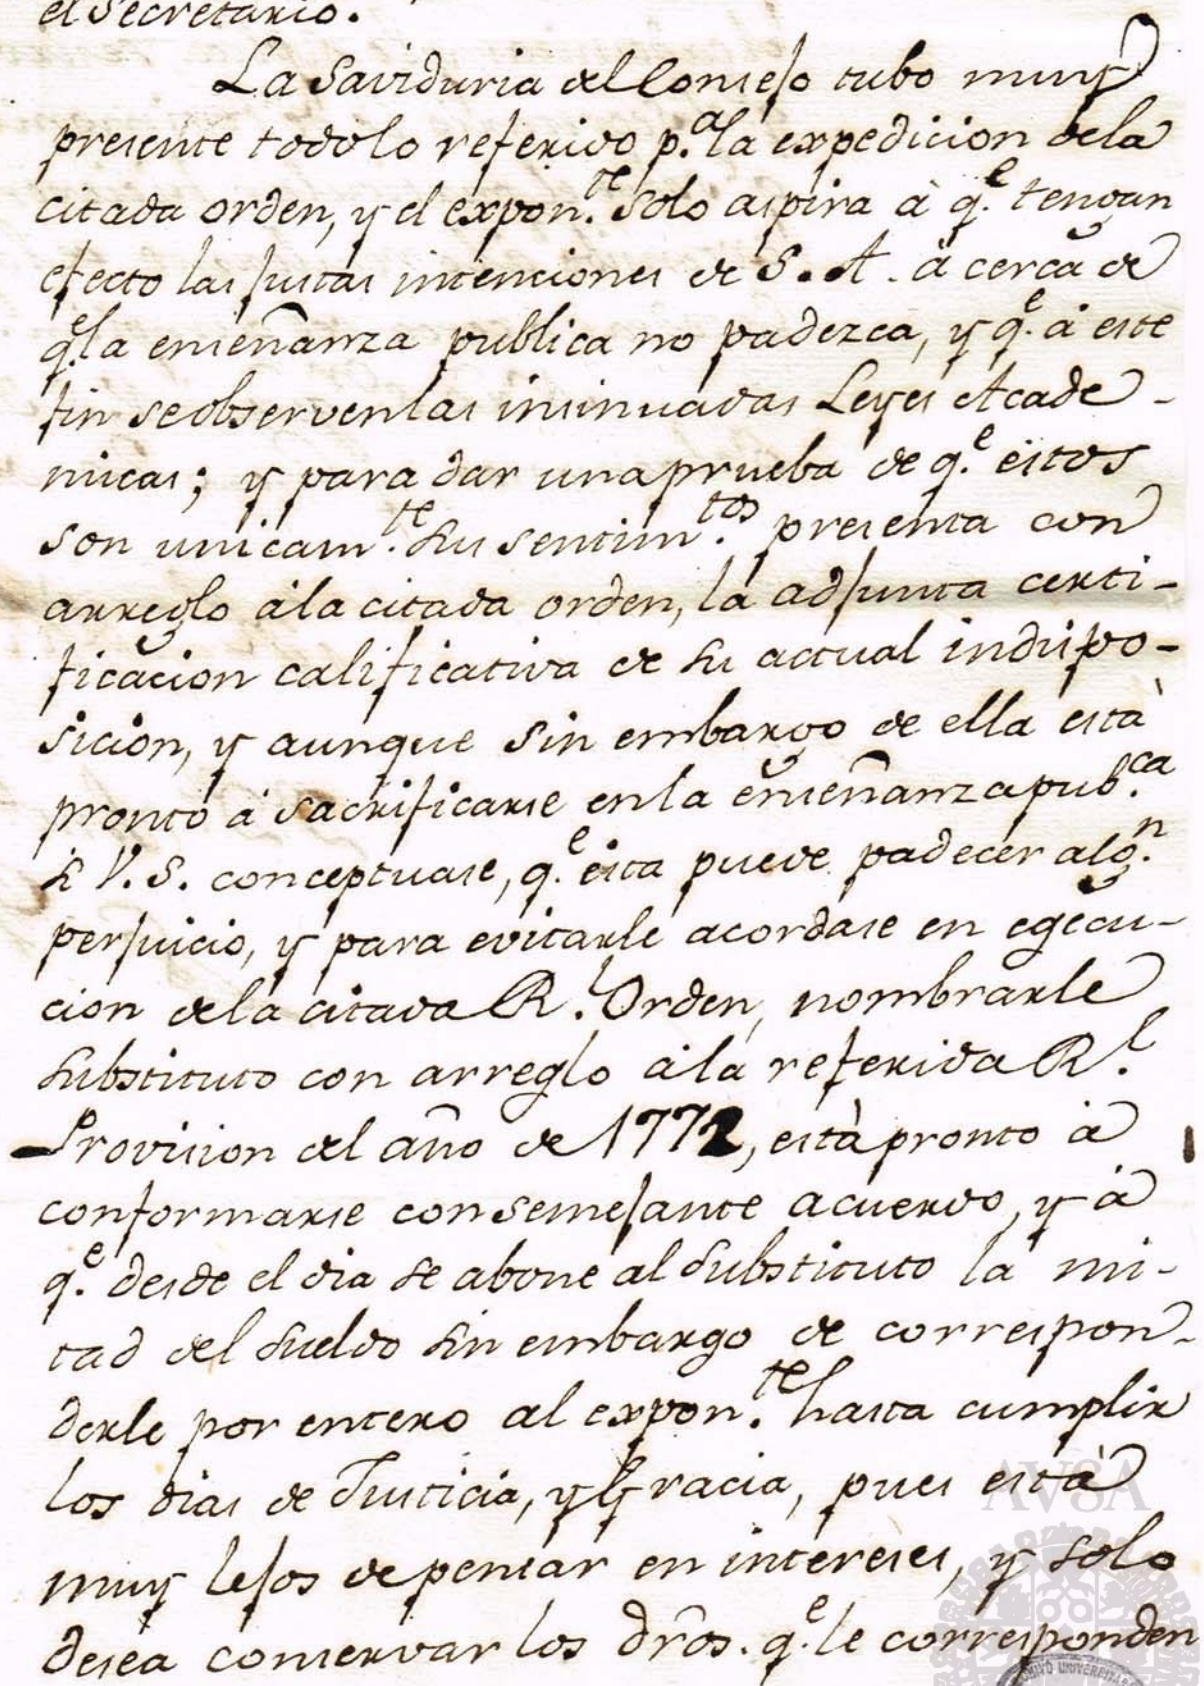 el Secretario.
La Saviduria del Consejo tubo muy
presente todo lo referido p.ª la expedicion dela
citada orden, y el expon.te solo aspira à q.e tengan
efecto las justas intenciones de S. A. à cerca de
q.e la enseñanza publica no padezca, y q.e à este
fin se observen las insinuadas Leyes Acade-
micas; y para dar una prueba de q.e estos
son unicam.te sus sentim.tos presenta con
arreglo àla citada orden, la adjunta certi-
ficacion calificativa de su actual indispo-
sicion, y aunque sin embargo de ella està
pronto à sacrificarse en la enseñanza pub.ca
si V. S. conceptuase, q.e esta puede padecer alg.n
perjuicio, y para evitarle acordase en egecu-
cion dela citada R.l Orden, nombrarle
substituto con arreglo àla referida R.l
Provision del año de 1772, està pronto à
conformarse con semejante acuerdo, y à
q.e desde el dia se abone al Substituto la mi-
tad del sueldo sin embargo de correspon-
derle por entero al expon.te hasta cumplir
los dias de Justicia, y Gracia, pues està
muy lejos de pensar en intereses, y solo
desea conservar los dr̃os. q.e le corresponden
AVSA
ARCHIVO UNIVERSITARIO